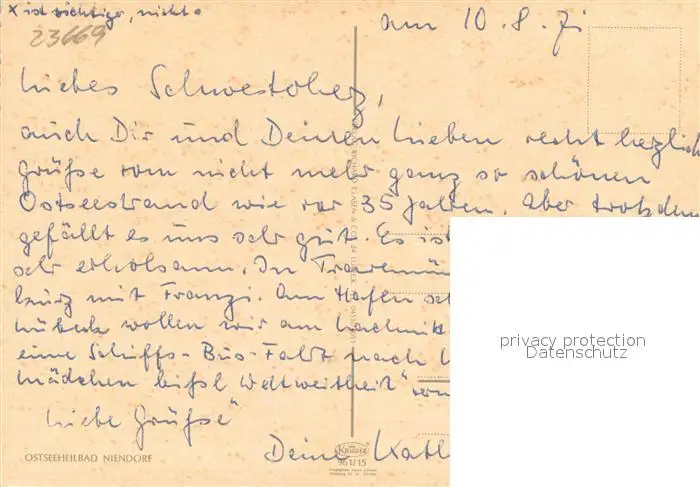 x ist richtiger, nicht.
23669
am 10.8.71
Liebes Schwesterherz,
auch Dir und Deinen Lieben recht herzlich
Grüße vom nicht mehr ganz so schönen
Ostseestrand wie vor 35 Jahren. Aber trotzdem
gefällt es uns sehr gut. Es ist
sehr erholsam. In Travemün
kurz mit Franzi. Am Hafen
Lübeck wollen wir am Nachmitt
eine Schiffs-Bus-Fahrt nach
mädchen bißl Weltweitheit"
Liebe Grüße
Deine Kath
OSTSEEHEILBAD NIENDORF
KRÜGER
961/15
privacy protection
Datenschutz